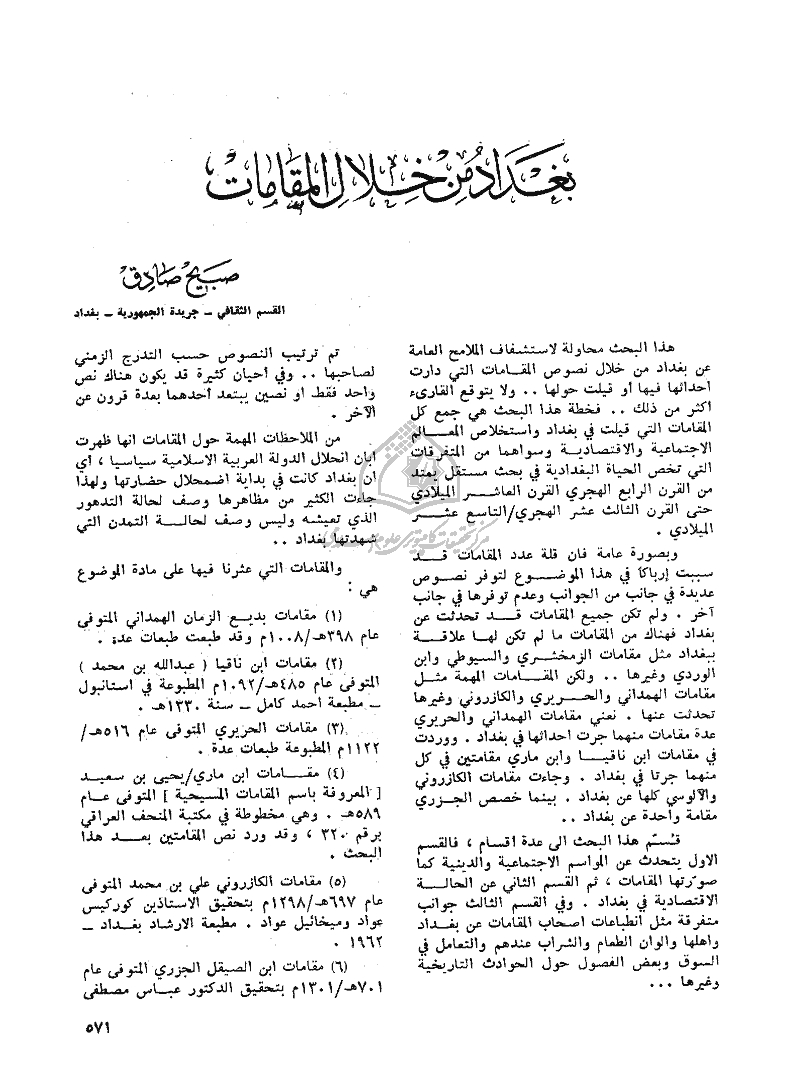 بغداد من خلال المقامات
صبيح صادق
القسم الثقافي ــ جريدة الجمهورية ــ بغداد
هذا البحث محاولة لاستشفاف الملامح العامة
عن بغداد من خلال نصوص المقـامات التي دارت
احداثها فيها أو قيلت حولها . . ولا يتوقع القارىء
اكثر من ذلك . . فخطة هذا البحث هي جمع كل
المقامات التي قيلت في بغداد واستخلاص المعـــالم
الاجتماعية والاقتصاديـــة وسواهما من المتفرقات
التي تخص الحياة البغدادية في بحث مستقل يمتد
من القرن الرابع الهجري القرن العاشـــر الميلادي
حتى القرن الثالث عشر الهجري/التاسع عشـــر
الميلادي .
وبصورة عامة فان قلة عدد المقامات قـــد
سببت إرباكاً في هذا الموضـــوع لتوفر نصـوص
عديدة في جانب من الجوانب وعدم توفرها في جانب
آخر . ولم تكن جميع المقامات قـــد تحدثت عن
بغداد فهناك من المقامات ما لم تكن لهـا علاقـــة
ببغداد مثل مقامات الزمخشري والسيوطي وابن
الوردي وغيرها . . ولكن المقـــامات المهمة مثـــل
مقامات الهمداني والحـــريري والكازروني وغيرها
تحدثت عنها . نعني مقامات الهمداني والحريري
عدة مقامات منهما جرت احداثها في بغداد . ووردت
في مقامات ابن ناقيـــا وابن ماري مقامتين في كل
منهما جرتا في بغداد . وجاءت مقامات الكازروني
والآلوسي كلها عن بغداد . بينما خصص الجـزري
مقامة واحدة عن بغداد . .
قُسّم هذا البحث الى عدة اقسام ، فالقسم
الاول يتحدث عن المواسم الاجتماعية والدينية كما
صورتها المقامات ، ثم القسم الثاني عن الحالـــة
الاقتصادية في بغداد . وفي القسم الثالث جوانب
متفرقة مثل انطباعات اصحاب المقامات عن بغـداد
واهلها والوان الطعام والشراب عندهم والتعامل في
السوق وبعض الفصول حول الحوادث التاريخية
وغيرها . . .
تم ترتيب النصوص حسب التدرج الزمني
لصاحبها . . وفي أحيان كثيرة قد يكون هناك نص
واحد فقط او نصين يبتعد أحدهما بعدة قرون عن
الآخر .
من الملاحظات المهمة حول المقامات انها ظهرت
ابان انحلال الدولة العربية الاسلامية سياسيا ، أي
ان بغداد كانت في بداية اضمحلال حضارتها ولهذا
جاءت الكثير من مظاهرها وصف لحالة التدهور
الذي تعيشه وليس وصف لحالـــة التمدن التي
شهدتها بغداد . .
والمقامات التي عثرنا فيها على مادة الموضوع
هي :
(١) مقامات بديـــع الزمان الهمداني المتوفى
عام ٣٩٨هـ/١٠٠٨م وقد طبعت طبعات عدة .
(٢) مقامات ابن ناقيا ( عبدالله بن محمد )
المتوفى عام ٤٨٥هـ/١٠٩٢م المطبوعة في استانبول
ــ مطبعة احمد كامل ــ سنة ١٣٣٠هـ .
(٣) مقامات الحريري المتوفى عام ٥١٦هـ/
١١٢٢م المطبوعة طبعات عدة .
(٤) مقـــامات ابن ماري/يحيى بن سعيـد
[ المعروفة باسم المقامات المسيحية ] المتوفى عـــام
٥٨٩هـ . وهي مخطوطة في مكتبة المتحف العراقي
برقم ٣٢٠ ، وقد ورد نص المقامتين بعـــد هـذا
البحث .
(٥) مقامات الكازروني علي بن محمد المتوفى
عام ٦٩٧هـ/١٢٩٨م بتحقيق الاستاذين كوركيس
عواد وميخائيل عواد . مطبعة الارشاد بغـــداد ــ
١٩٦٢ .
(٦) مقامات ابن الصيقل الجزري المتوفى عام
٧٠١هـ/١٣٠١م بتحقيق الدكتور عبـاس مصطفى
٥٧١